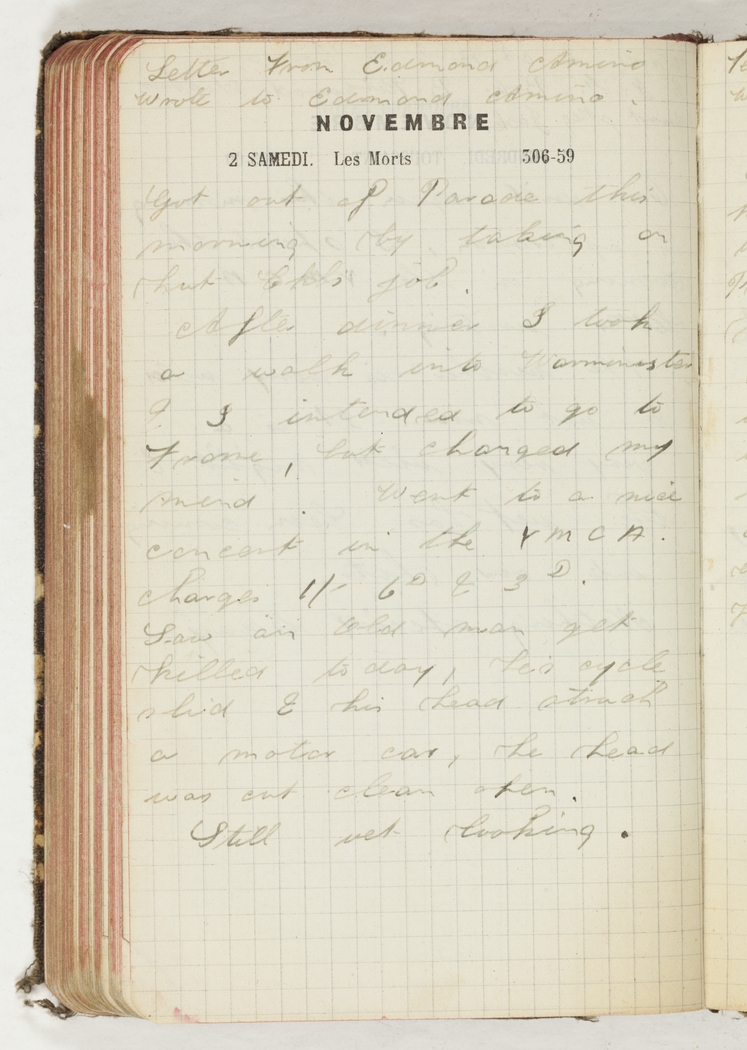 Letter From Edmond Amino
Wrote to Edmond Amino.
NOVEMBRE
2 SAMEDI. Les Morts 306-59
Got out of Parade this
morning by taking on
hut job.
After dinner I took
a walk into Warminster
I intended to go to
Frome, but changed my
mind. Went to a nice
concert in the YMCA.
charges 1/- 6D & 3D.
Saw an old man get
killed today, his cycle
slid & his head struck
a motor car, the head
was cut clean open.
Still wet looking.